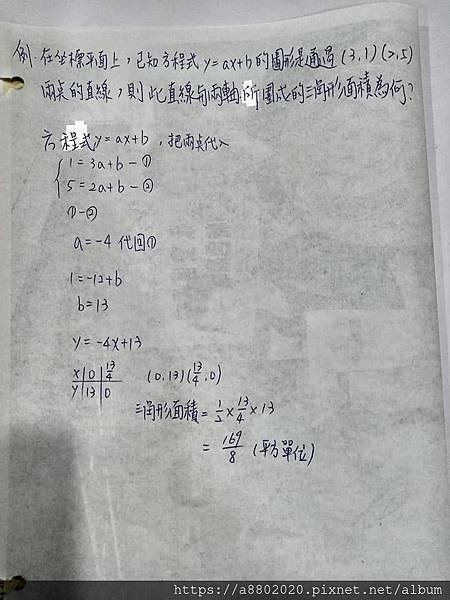 例. 在坐標平面上，已知方程式 y=ax+b 的圖形是通過 (3,1) (2,5)
兩點的直線，則此直線與兩軸所圍成的三角形面積為何?
方程式 y=ax+b，把兩點代入
{ 1=3a+b-①
5=2a+b-②
①-②
a=-4 代回①
1=-12+b
b=13
y=-4x+13
x | 0 | 13/4
y | 13 | 0
(0,13) (13/4,0)
三角形面積 = 1/2 × 13/4 × 13
= 169/8 (平方單位)
https://a8802020.pixnet.net/album